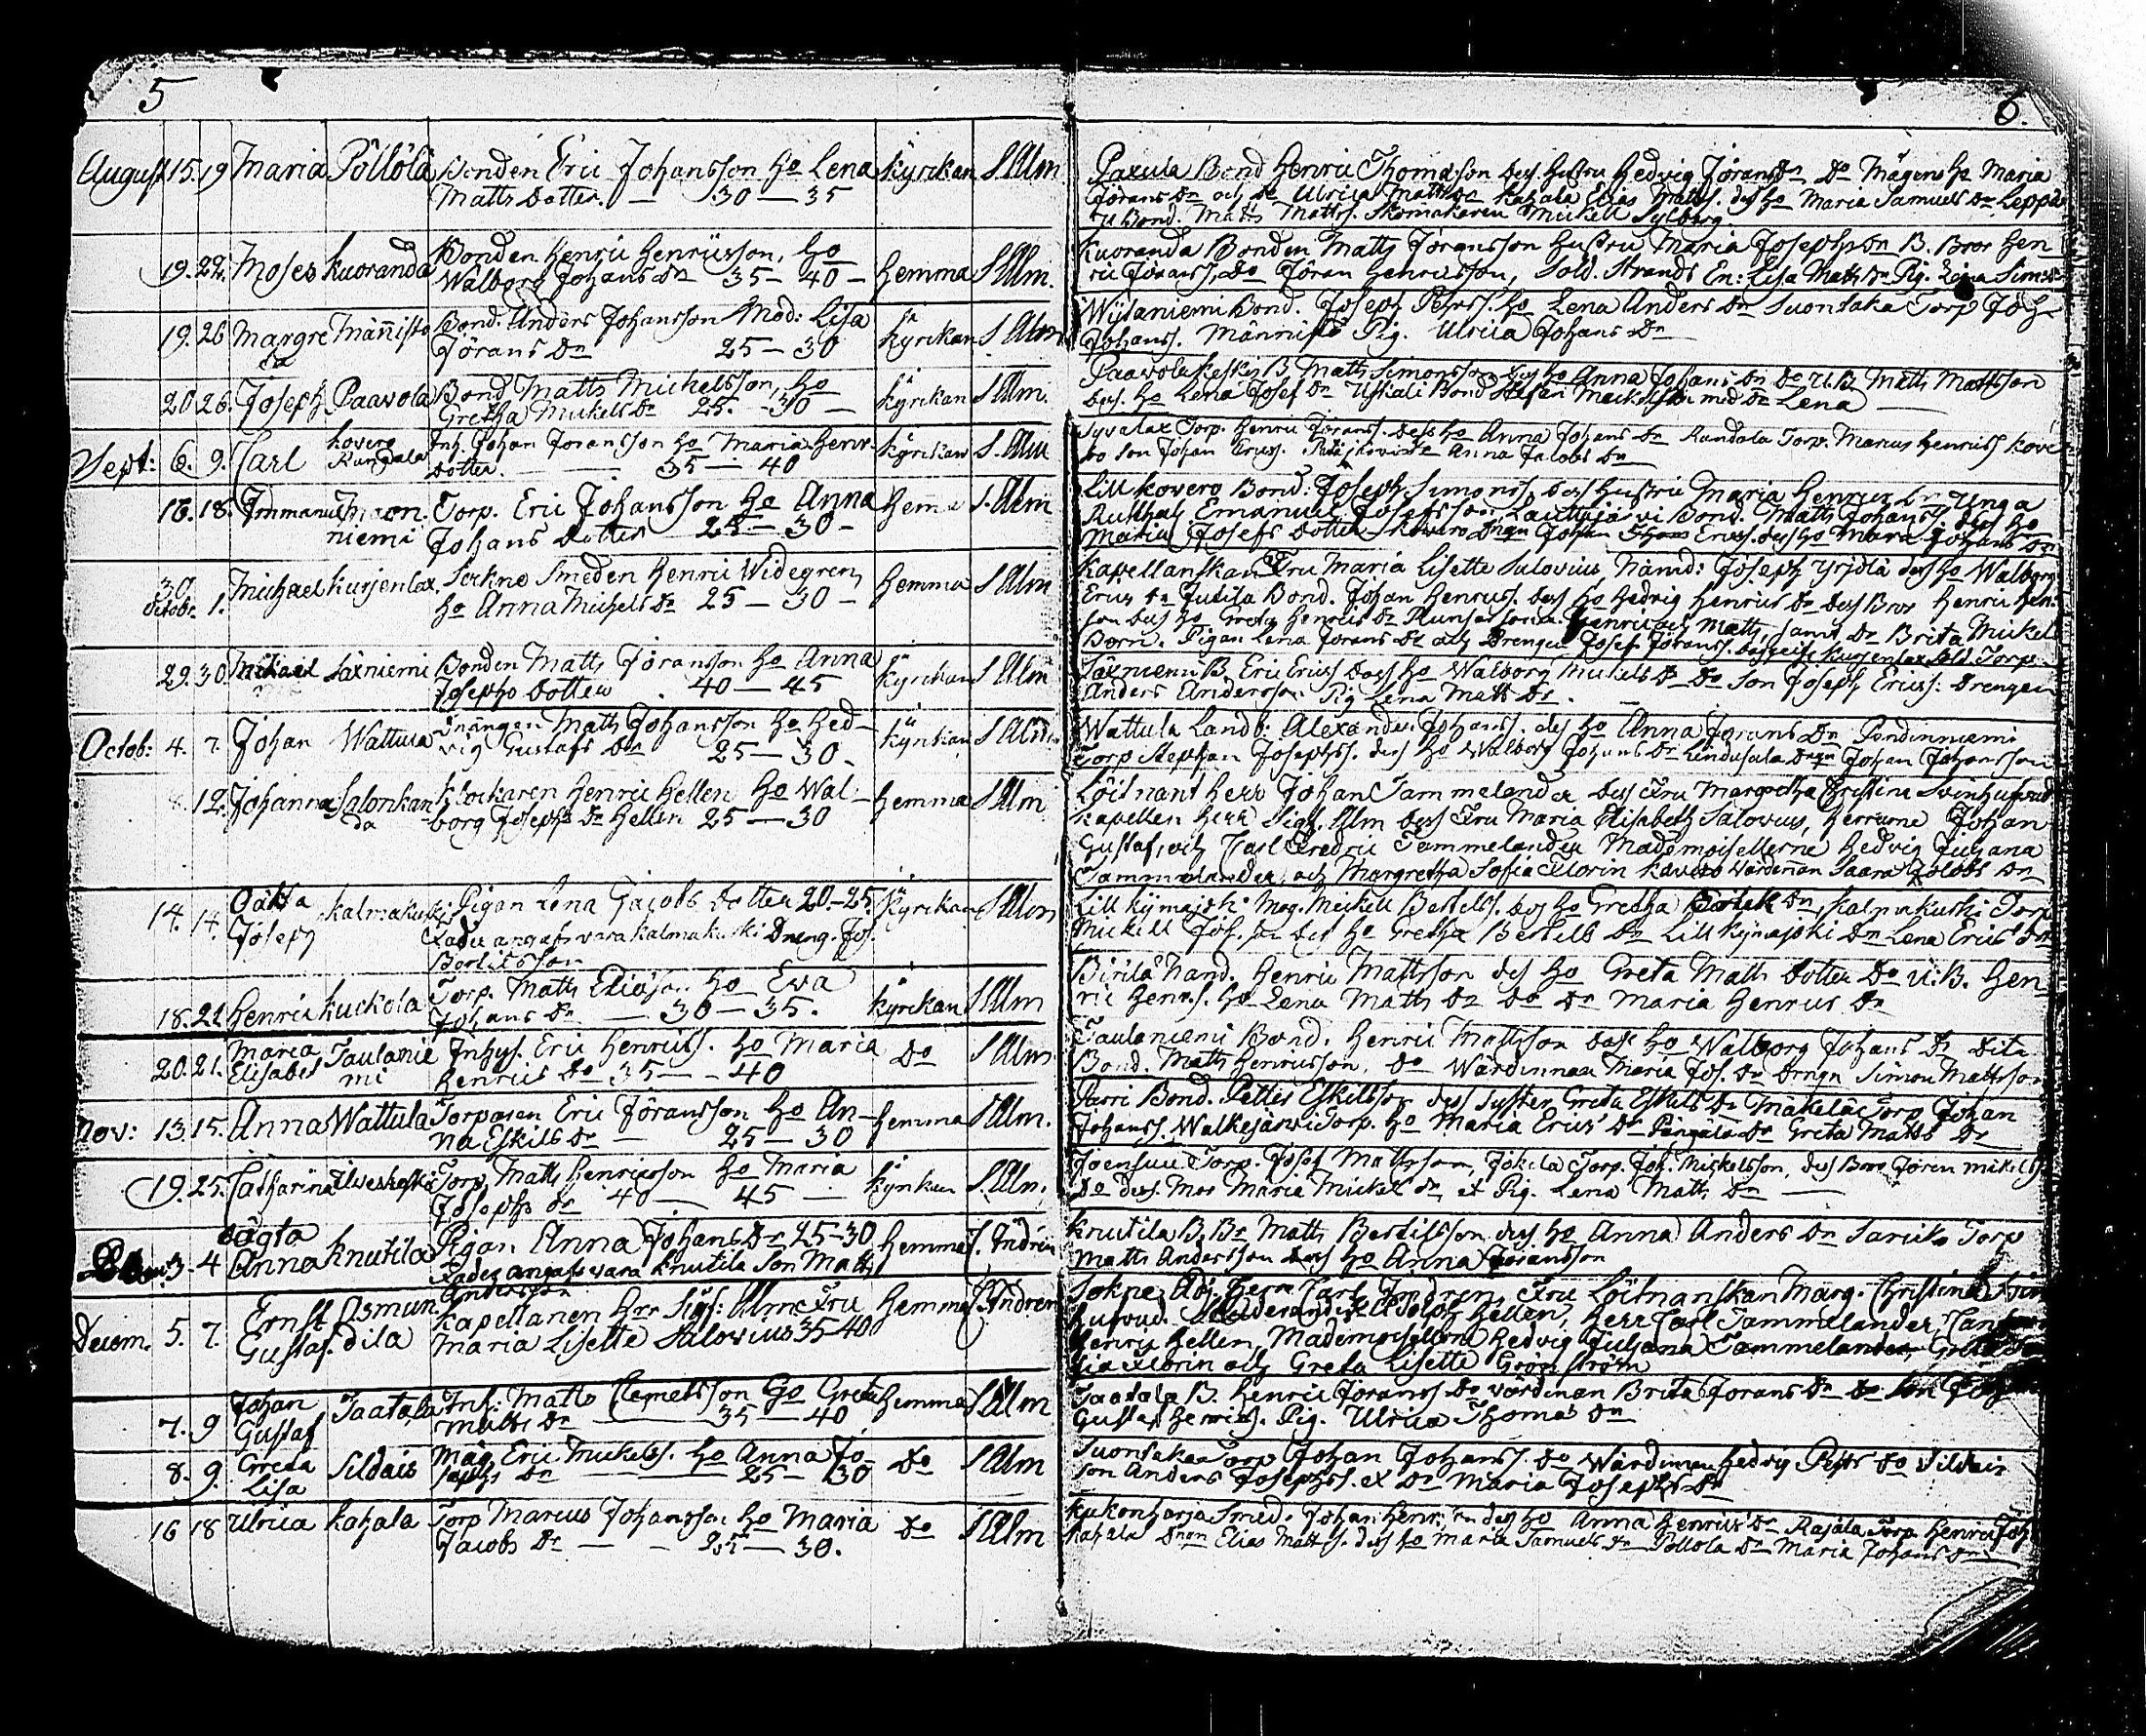 5
August 15. 19 Maria Pöllölä Bonden Eric Johansson ho Lena kyrckan S. Alm
Matts Dotter. — 30 — 35
19. 22. Moses kuoranda Bonden Henric Henricsson, ho
Walborg Johans Dr 35 — 40 — hemma S Alm.
19. 26 Margre Männistö Bond. Anders Johansson Mod: Lisa kyrckan S Alm
ta Jörans Dr 25 — 30
20 26. Joseph Paavola Bond Matts Michelsson, ho kyrckan S Alm.
Gretha Mickels Dr 25 — 30 —
Sept: 6. 9. Carl kovero Inh Johan Joransson ho Maria Henr. kyrckan S. Alm
Randala Dotter. — 35 — 40
16. 18. Immanuel Torp. Eric Johansson ho Anna hemma S. Alm
niemi Johans Dotter 25 — 30 —
30. Michael kurjenlax. Sockne Smeden Henric Widegren, hemma S Alm
Octobr. 1. ho Anna Michels Dr 25 — 30 —
29. 30. Michael Saxniemi Bonden Matts Jöransson ho Anna kyrckan S Alm
Josephs Dotter . 40 — 45
Octob: 4. 7. Johan Wattula Drängen Matts Johansson ho Hed- kyrckan S Alm
vig Gustafs Dr 25 — 30.
8. 12. Johanna Salonkan Klockaren Henric Hellen ho Wal- hemma S Alm
da borg Josephs Dr Hellen 25 — 30
14. 14. Oäkta kalmakuski Pigan Lena Jacobs Dotter 20-25 kyrckan S Alm
Joseph Fader angafs vara kalmakuski Dreng. Jos.
Bertilsson
18. 21 Henric kuckola Torp. Matts Eliasson ho Ewa kyrckan S Alm
Johans Dr — 30 — 35.
20. 21. Maria Taulanie Inhys. Eric Henricss. ho Maria Do S Alm
Elisabet mi Henrics Dr 35 — 40
Nov: 13. 15. Anna Wattula Torparen Eric Jöransson ho An- hemma S Alm.
na Eskils Dr — 25 — 30
19. 25. Catharina Torp. Matts Henricsson ho Maria kyrckan S. Alm.
Josephs Dr 40 — 45 —
3. 4 oägta
Anna Knutila Pigan Anna Johans Dr. 25-30 hemma
Fader angafs vara Knutila Son Matts
Andersson
Decem. 5. 7. Ernst Osmun Kapellanen Hrr Sigf: Alm Fru hemma Indren
Gustaf. dila Maria Lisette Salovius 35-40
7. 9 Johan Taatala Inh: Matts Clemetsson ho Greta hemma S Alm
Gustaf Matts Dr — 35 — 40
8. 9. Greta Sildais Måg Eric Mickelss. ho Anna Jo- Do S Alm
Lisa sephs Dr — 25 — 30
16 18 Ulrica kahala Torp Marcus Johansson ho Maria Do S Alm
Jacobs Dr — — 25 — 30.
6.
Paxula Bond Henric Thomasson des Hustru Hedvig Jörans Dr Do Mågens ho Maria
Jörans Dr och Do Ulrica Matts Dr kahala Elias Matts. des ho Maria Samuels Dr Leppä
Bond. Matts Mattss. Skomakaren Mickell Sylberg
Kuoranda Bonden Matts Jöransson Hustru Maria Josephs Dr B. Bror Hen
ric Jöranss, Do Jöran Henricsson, Sold. Strands En: Lisa Matts Dr Pig. Lena Simes
Bond. Joseph Petrs. ho Lena Anders Dr Suontaka Torp Joh
Johanss. Männistö Pig. Ulrica Johans Dr
Paavola keskis B Matts Simonsson des ho Anna Johans Dr Do U.B. Matts Mattsson
des. ho Lena Josef Dr Uskali Bond Stefan med Dr Lena
Torp. Henric Jöranss. dess ho Anna Johans Dr Randala Torp. Marcus Henricss kove
ro Son Johan Ericss. Anna Jacobs Dr
Lill kovero Bond: Joseph Simonss, des Hustru Maria Henrics Dr Unga
Emanuel Josefsson Lauttajärvi Bond. Matts Johanss des ho
Maria Josefs Dotter kovero Drgn Johan Ericss. des ho Maria Johans Dr
Kapellanskan Fru Maria Lisette Salovius Nämd: Joseph Yrjölä des ho Walborg
Erics Dr Jutila Bond. Johan Henricss. des ho Hedvig Henrics Dr des Bror Henric Hen:
son des ho Greta Henrics Dr Henric och Matts, samt Dr Brita Mickels
Barn. Pigan Lena Jörans Dr och Drengen Josef Jöranss. kurjenlax Sold. Torp
Saxniemi B Eric Ericss dess ho Walborg Mickels Dr Do Son Joseph Ericss: Drengen
Anders Andersson Pig Lena Matts Dr.
Wattula Landb: Alexander Johanss. des ho Anna Jörans Dr Pendinniemi
Torp Stephan Josephss. des ho Walborg Johans Dr Lindusala Drgn Johan Johansson
Löitnant Herr Johan Tammelander des Fru Margretha Christina Svinhufvud
kapellan Herr Sigf. Alm des Fru Maria Elisabeth Salovius, Herrarne Johan
Gustaf, och Carl Fredric Tammelander Mademoisellerne Hedvig Juliana
Tammelander, och Margretha Sofia Florin kavero Wärdinnan Saara Jacobs Dr
Lill kijmajoki Måg. Mickell Bertelss. des ho Gretha Dr, kalmakuski Torp
Mickell Joh.son des ho Gretha Bertils Dr Lill kijmajoki Dr Lena Erics Dr
Birilä Nämd. Henric Mattsson des ho Greta Matts Dotter Do U.B. Hen
ric Henrs. ho Lena Matts Dr Do Dr Maria Henrics Dr
Taulaniemi Bond. Henric Mattsson des ho Walborg Johans Dr dito
Bond. Matts Henricsson, Do Wärdinnan Maria Jos. Dr Drngn Simon Mattsson
Sarri Bond. Petter Eskilsson des Syster Greta Eskils Dr Mäkelä Torp Johan
Johanss. Walkejärvi Torp. ho Maria Erics Dr Dr Greta Matts Dr
Joensuu Torp. Josef Mattsson, Jokela Torp. Joh. Mickelsson, des Bror Jören Mikelss
Do des. Mor Maria Mickels Dr et Pig. Lena Matts Dr
Knutila B. Br Matts Bertilsson des ho Anna Anders Dr Torp
Matts Andersson des ho Anna Joransson
Sokne Adj. Herr Carl Indren, Fru Löitnanskan Marg. Christina Svin
hufvud. Adolph Hellen, Herr Carl Tammelander,
Henric Hellen, Mademoisellerne Hedvig Juliana Tammelander,
fia Florin och Greta Lisette Grönström
Taatala B. Henric Joranss Do värdinnan Brita Jorans Dr Do Son
Gustaf Henricss. Pig. Ulrica Thomas Dr
Suontaka Torp Johan Johanss. Do Wärdinnan Hedvig Dr Sildais
Son Anders Josephss. et Dr Maria Josephs Dr
Kukonharja Smed. Johan des ho Anna Henrics Dr Rajala Torp Henric Joh
kahala Elias Matts. des ho Maria Samuels Dr Pöllölä Dr Maria Johans Dr